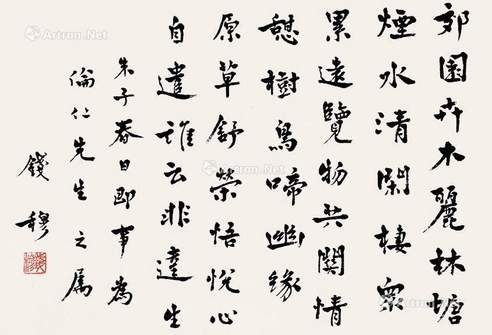 郊園卉木麗林塘
煙水清閑棲眾
累遠覽物共關情
憩樹鳥啼幽緣
原草舒榮悟悅心
自遣誰云非達生
朱子春日即事為
倫仁先生之属
錢穆
Artron.Net
Artron.Net
Artron.Net